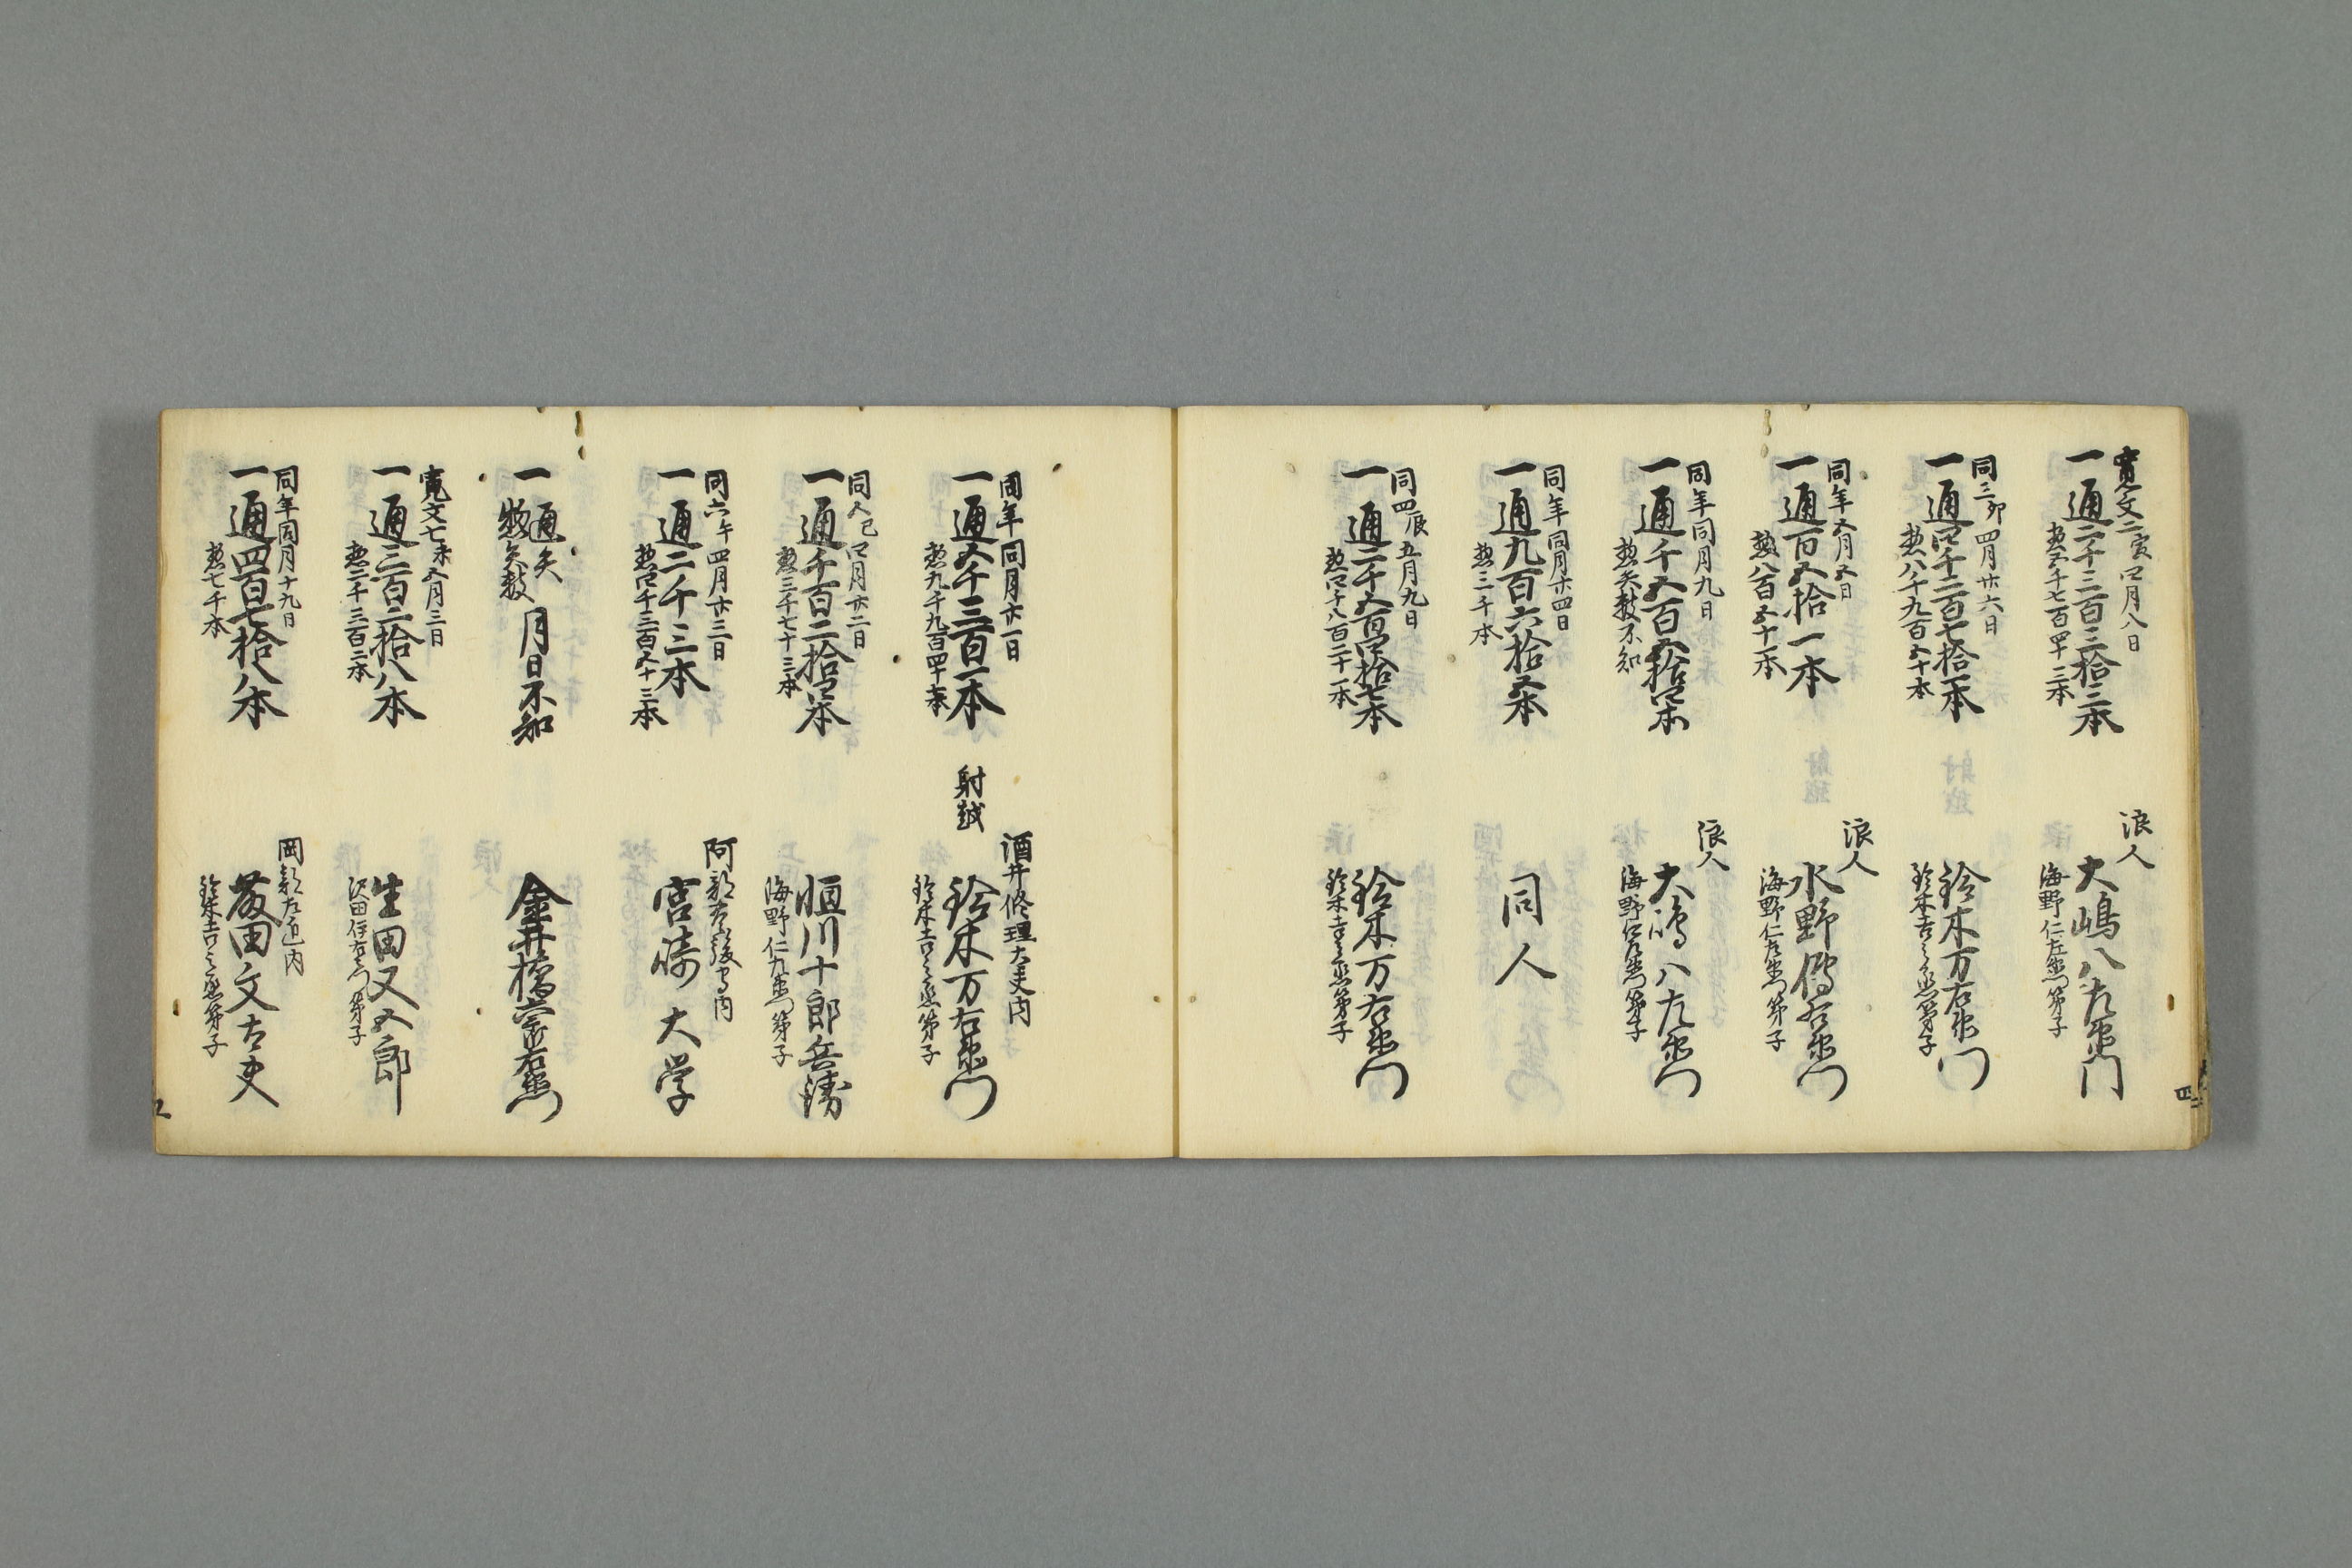 寛文二寅四月八日
一通二千三百三拾二本
惣五千七百四十三本
浪人
大嶋八左衛門
海野仁左衛門弟子
同三卯四月廿六日
一通四千二百七拾一本
惣八千九百五十本
鈴木万右衛門
鈴木吉之丞弟子
同年五月五日
一通百五拾一本
惣八百五十一本
浪人
水野傳右衛門
海野仁左衛門弟子
同年同月九日
一通千五百五拾四本
惣矢数不知
浪人
大嶋八左衛門
海野仁左衛門弟子
同年同月廿四日
一通九百六拾五本
惣三千本
同人
同四辰五月九日
一通二千五百四拾七本
惣四千八百二十一本
鈴木万右衛門
鈴木吉之丞弟子
同年同月廿一日
一通五千三百一本
惣九千九百四十本
射越
酒井修理大夫内
鈴木万右衛門
鈴木吉之丞弟子
同人巳四月廿二日
一通千百二拾四本
惣三千七十三本
恒川十郎兵衛
海野仁左衛門弟子
同六午四月廿三日
一通二千三本
惣四千三百五十三本
阿部豊後守内
宮崎大学
一通矢
惣矢数
月日不知
金井橋六右衛門
寛文七未五月三日
一通三百二拾八本
惣二千三百二本
生田又五郎
沢田伊右衛門弟子
同年同月十九日
一通四百七拾八本
惣七千本
岡部左近内
藤田文太夫
鈴木吉之丞弟子
四